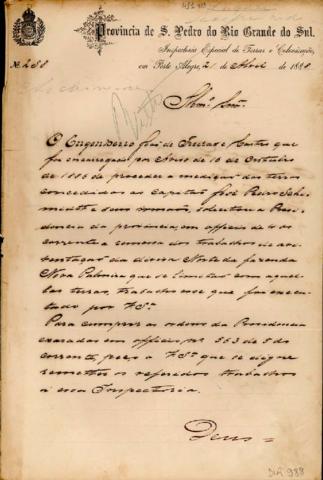 Provincia de S. Pedro do Rio Grande do Sul.
Inspectoria Especial de Terras e Colonização,
em Porto Alegre, 21 de Abril de 1888.
Nº 288
Visto
Illmo. Snr.
O Engenheiro José de Freitas e Castro que
foi encarregado por Aviso de 16 de Outubro
de 1886 de proceder a medição das terras
concedidas ao capitão José Pedro Sch-
midt e seus irmãos, solicitou a Presi-
dencia da provincia, em officio de 10 do
corrente a remessa dos trabalhos de
da divisa Norte da fazenda
Nova Palmira que se limitão com aquel-
las terras, trabalhos esse que foi execu-
tado por V.Sª
Para cumprir as ordens da Presidencia
exaradas em officio nº 553 de 5 do
corrente, peço a V.Sª que se digne
remetter os referidos trabalhos
a essa Inspectoria.
Deus